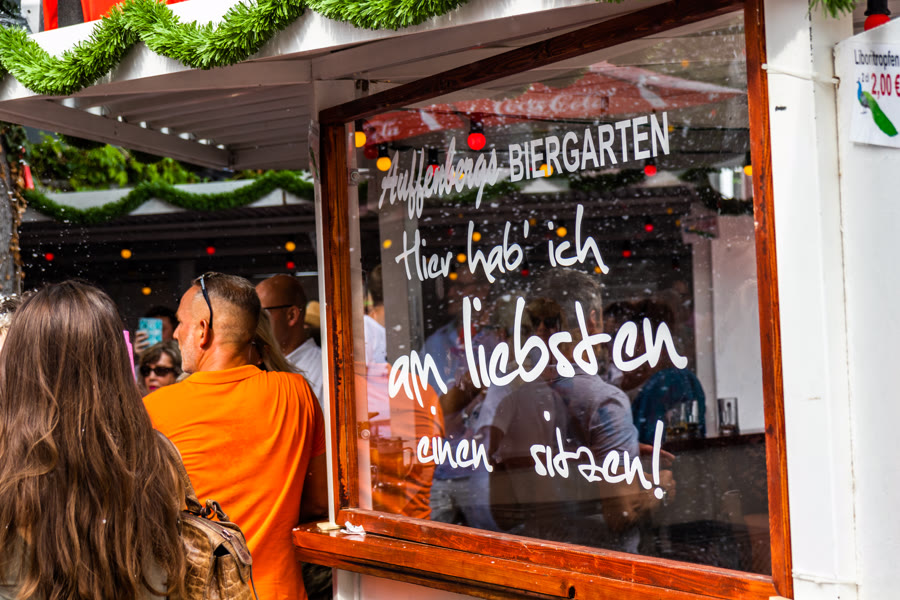 Auffenbergs BIERGARTEN
Hier hab' ich
am liebsten
einen sitzen!
Liboritropfen
2 cl 2,00 €
Coca-Cola